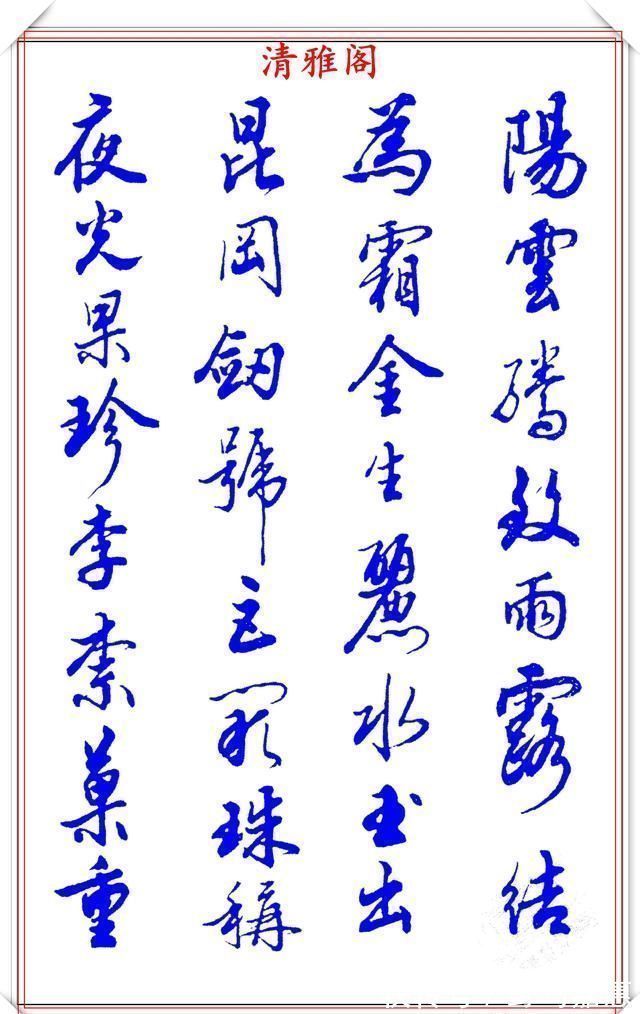 清雅阁
陽雲騰致雨露結
為霜金生麗水玉出
昆岡劒號巨闕珠稱
夜光果珍李柰菜重